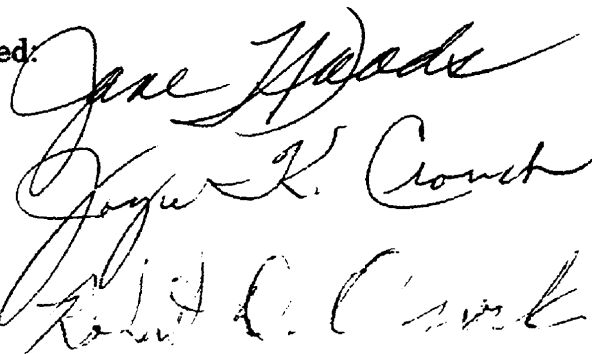 ed:
Jane Woods
Joyce K. Crouch
Robert D.